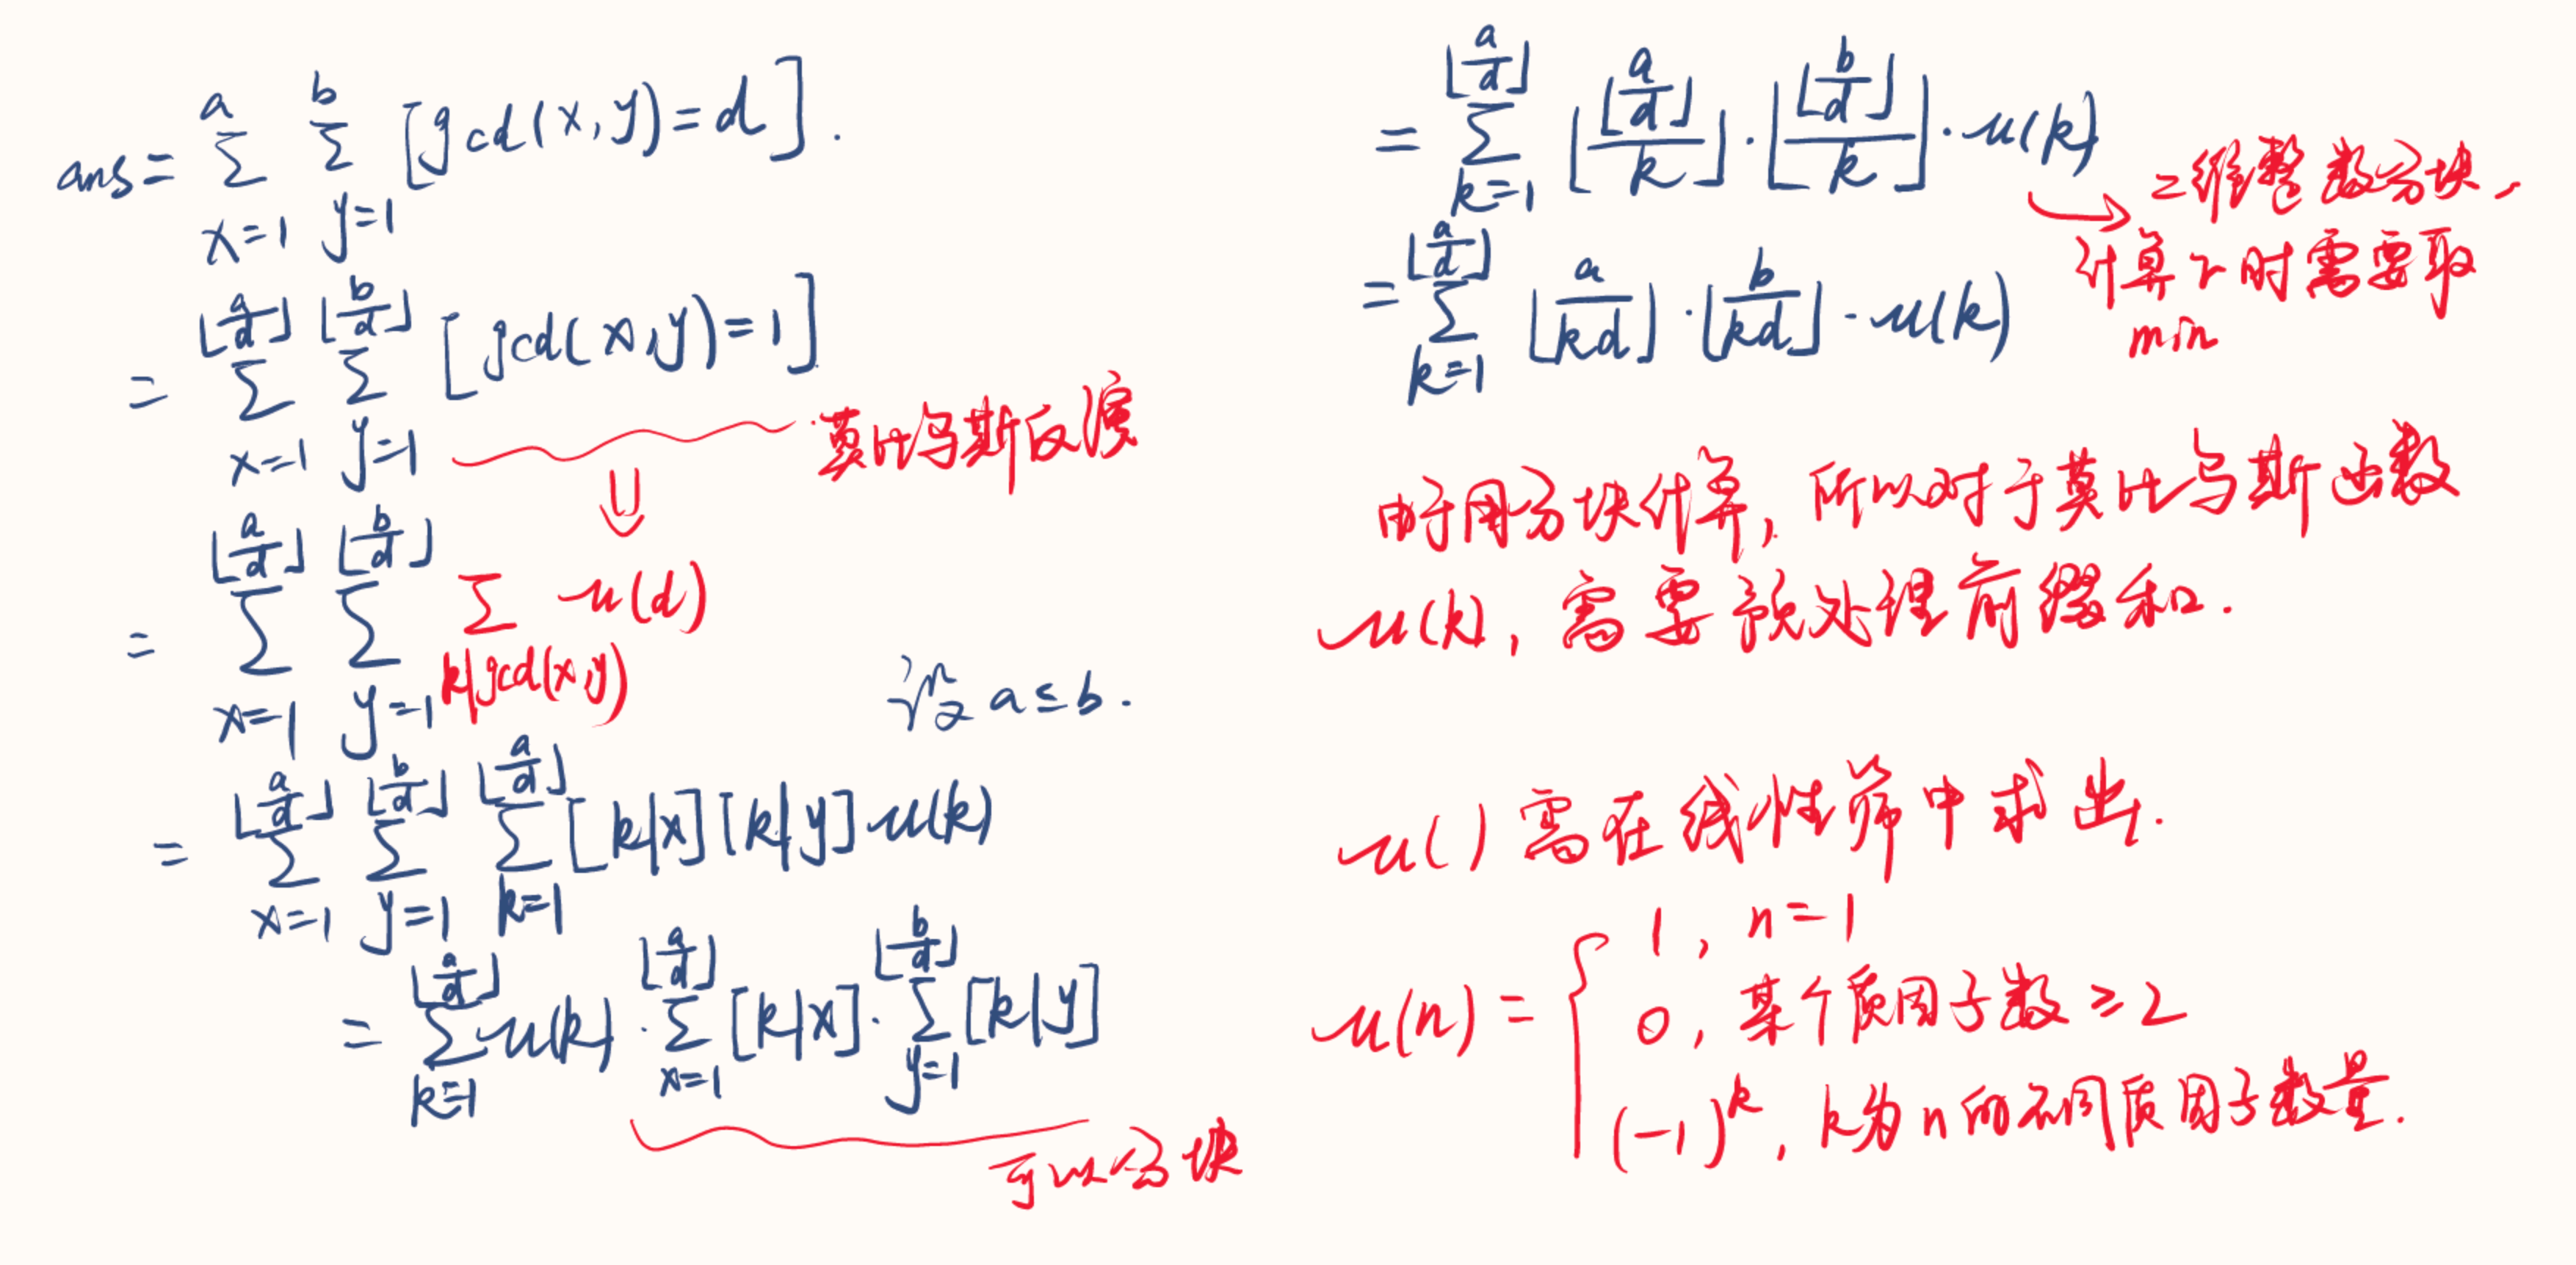 ans = \sum_{x=1}^{a} \sum_{y=1}^{b} [gcd(x,y)=d].
= \sum_{x=1}^{⌊\frac{a}{d}⌋} \sum_{y=1}^{⌊\frac{b}{d}⌋} [gcd(x,y)=1]
莫比乌斯反演
⇓
= \sum_{x=1}^{⌊\frac{a}{d}⌋} \sum_{y=1}^{⌊\frac{b}{d}⌋} \sum_{k|gcd(x,y)} u(d)
设 a≤b.
= \sum_{x=1}^{⌊\frac{a}{d}⌋} \sum_{y=1}^{⌊\frac{b}{d}⌋} \sum_{k=1}^{⌊\frac{a}{d}⌋} [k|x][k|y]u(k)
= \sum_{k=1}^{⌊\frac{a}{d}⌋} u(k) · \sum_{x=1}^{⌊\frac{a}{d}⌋} [k|x] · \sum_{y=1}^{⌊\frac{b}{d}⌋} [k|y]
可以分块
= \sum_{k=1}^{⌊\frac{a}{d}⌋} ⌊\frac{⌊\frac{a}{d}⌋}{k}⌋ · ⌊\frac{⌊\frac{b}{d}⌋}{k}⌋ · u(k)
→ 二维整数分块,
计算r时需要取
min
= \sum_{k=1}^{⌊\frac{a}{d}⌋} ⌊\frac{a}{kd}⌋ · ⌊\frac{b}{kd}⌋ · u(k)
由于用分块计算, 所以对于莫比乌斯函数
u(k), 需要预处理前缀和.
u( ) 需在线性筛中求出.
u(n) = { 1, n=1
0, 某个质因子数 ≥2
(-1)^k, k为n的不同质因子数量.